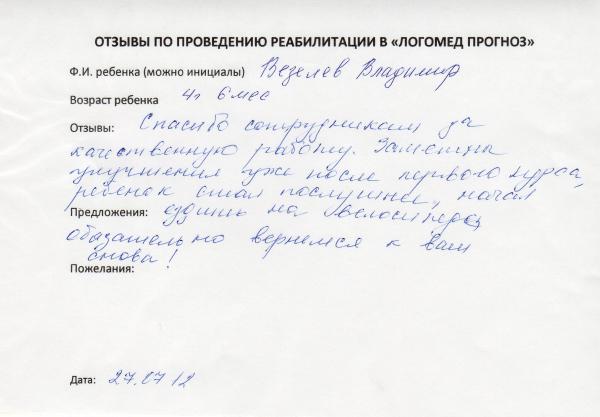 ОТЗЫВЫ ПО ПРОВЕДЕНИЮ РЕАБИЛИТАЦИИ В «ЛОГОМЕД ПРОГНОЗ»
Ф.И. ребенка (можно инициалы) Везелев Владимир
Возраст ребенка 4г 6 мес
Отзывы: Спасибо сотрудникам за
качественную работу. Заметны
улучшения уже после первого курса,
ребенок стал послушнее, начал
Предложения: ездить на велосипеде,
обязательно вернемся к вам
снова!
Пожелания:
Дата: 27.07 12